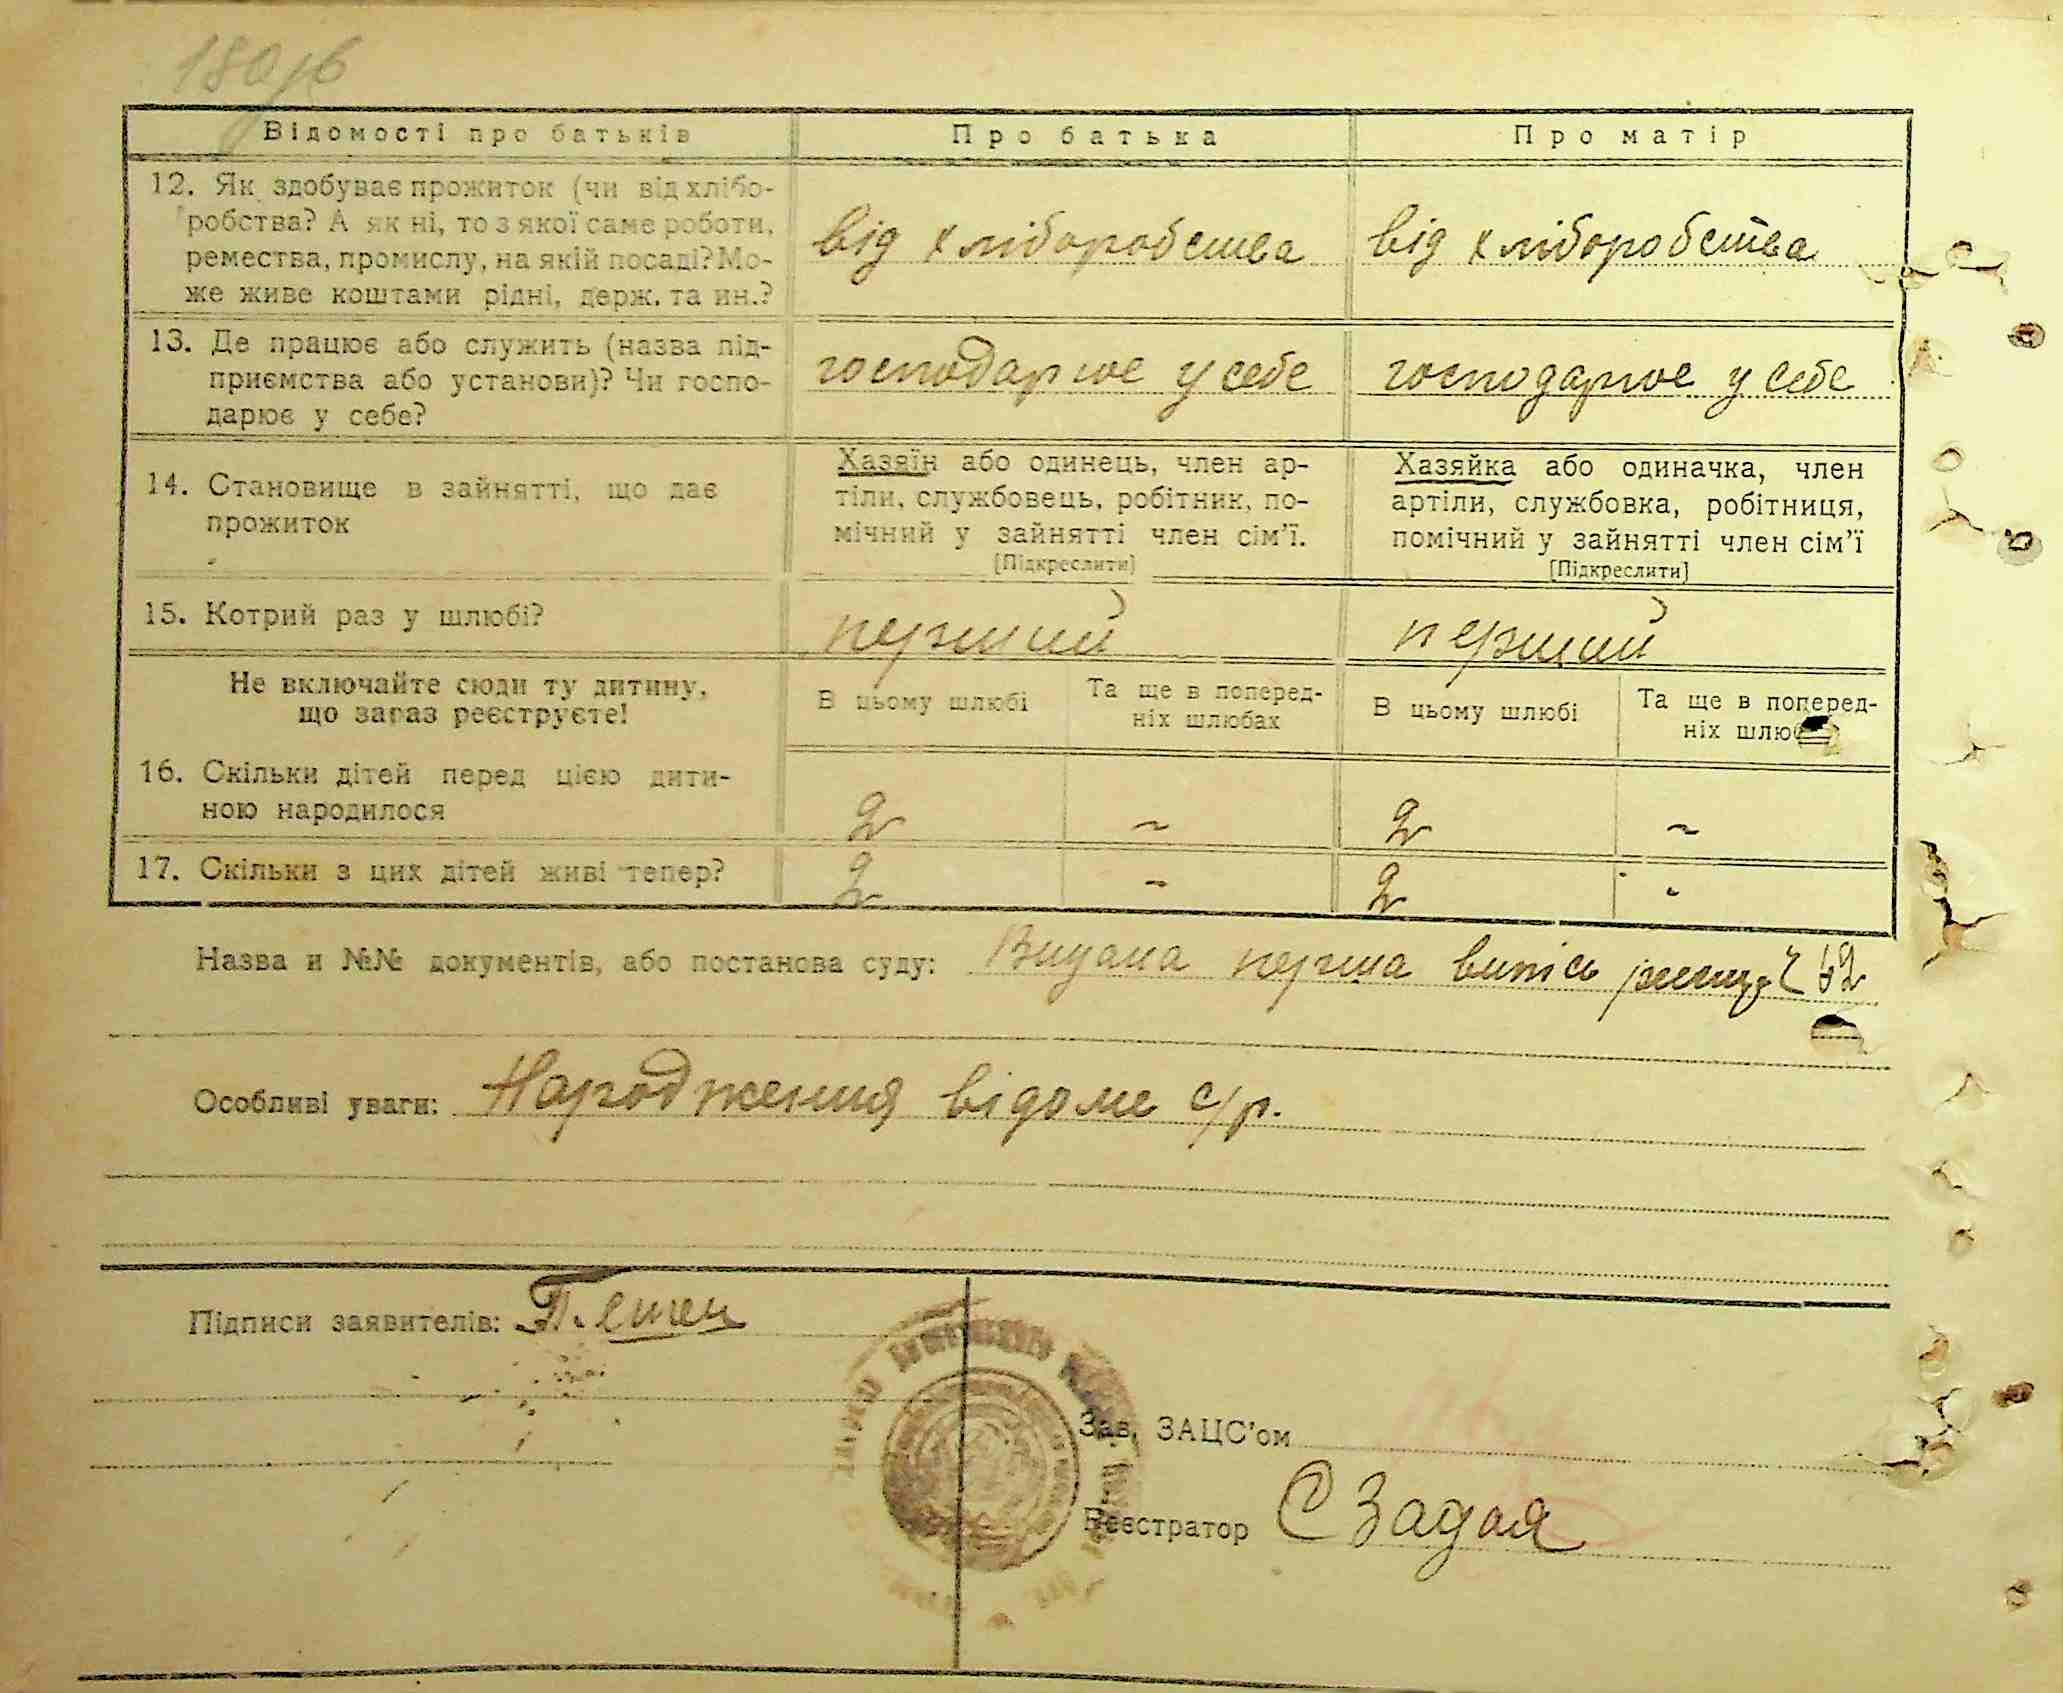 Відомості про батьків Про батька Про матір
12. Як здобуває прожиток (чи від хлібо-
робства? А як ні, то з якої саме роботи,
ремества, промислу, на якій посаді? Мо-
же живе коштами рідні, держ. та ин.?
від хліборобства від хліборобства
13. Де працює або служить (назва під-
приємства або установи)? Чи госпо-
дарює у себе?
господарює у себе господарює у себе
14. Становище в зайнятті, що дає
прожиток
Хазяїн або одинець, член ар-
тіли, службовець, робітник, по-
мічний у зайнятті член сім'ї.
[Підкреслити]
Хазяйка або одиначка, член
артіли, службовка, робітниця,
помічний у зайнятті член сім'ї
[Підкреслити]
15. Котрий раз у шлюбі? перший перший
Не включайте сюди ту дитину,
що зараз реєструєте!
В цьому шлюбі
Та ще в поперед-
ніх шлюбах
В цьому шлюбі
Та ще в поперед-
ніх
16. Скільки дітей перед цією дити-
ною народилося
2 ~ 2 ~
17. Скільки з цих дітей живі тепер? 2 - 2 -
Назва и №№ документів, або постанова суду: Видана перша випісь
Особливі уваги: Народження відоме с/р.
Підписи заявителів:
Зав. ЗАЦС'ом
Реєстратор С Задоя